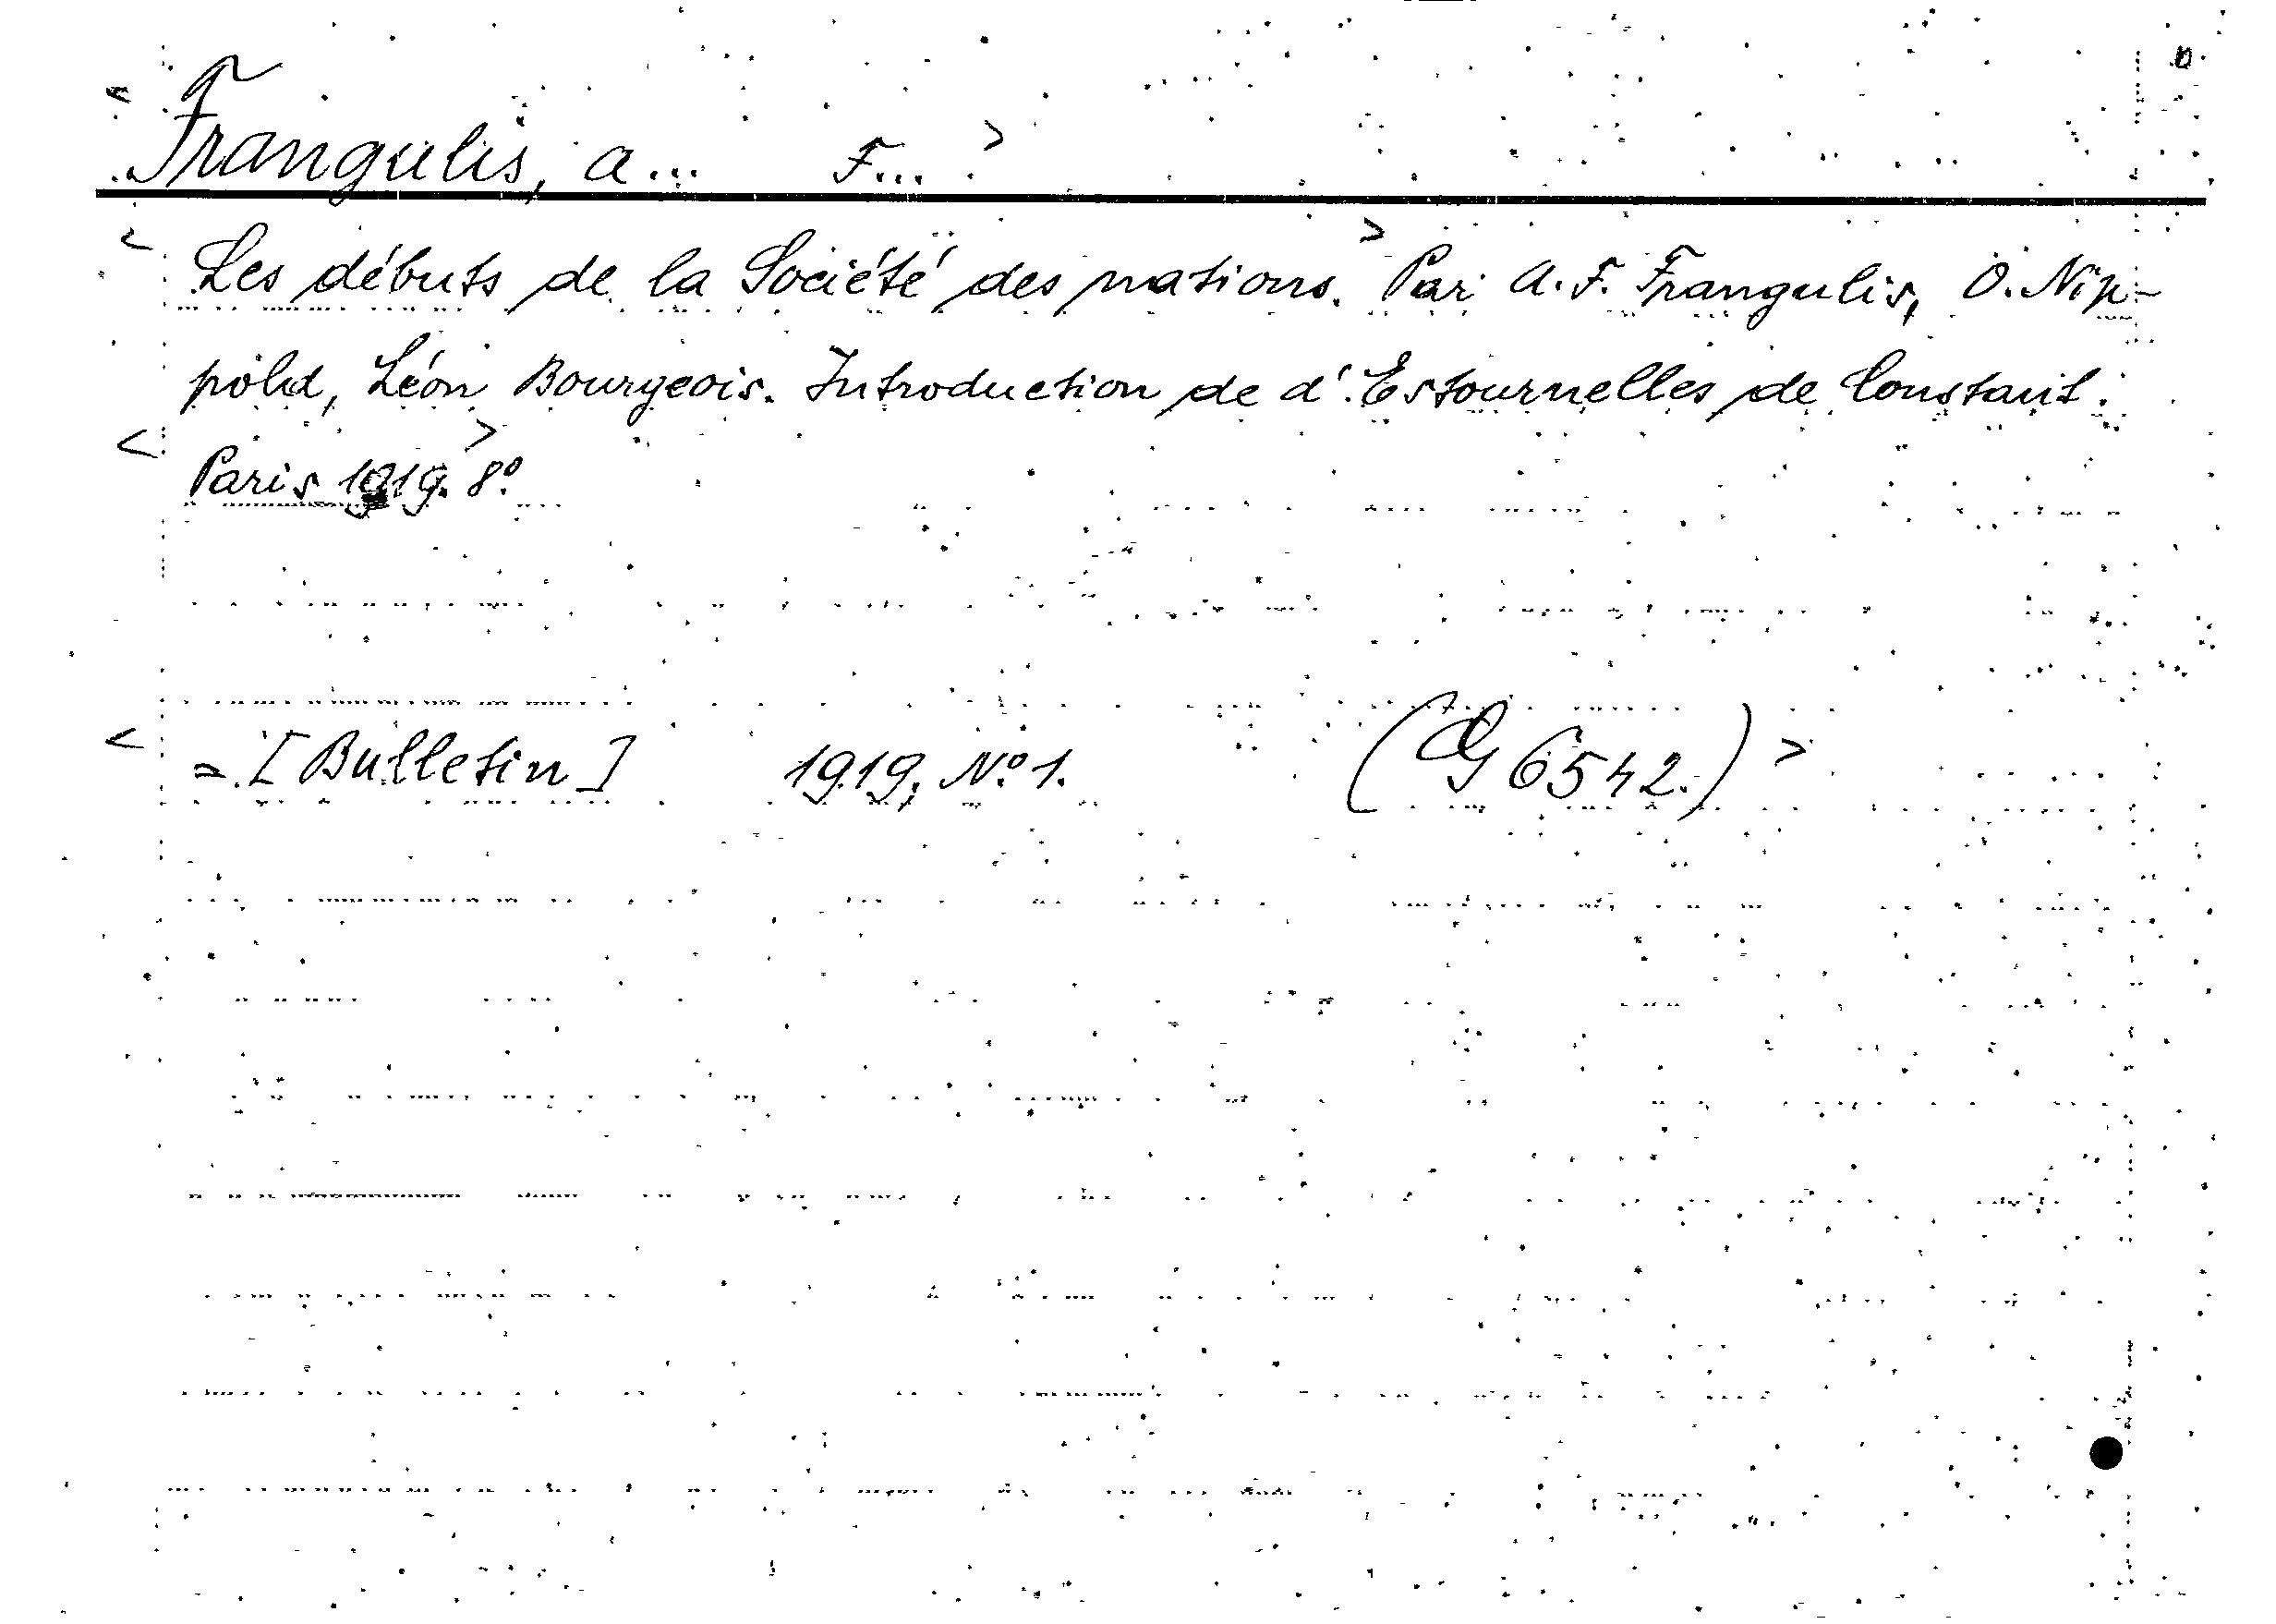 < Frangulis, A... F... >
< Les débuts de la Société des nations. > Par A. F. Frangulis, O. Nip-
pold, Léon Bourgeois. Introduction de d'Estournelles de Constant.
< Paris 1919. > 8°.
< = [Bulletin] 1919, No 1. (G 6542.) >